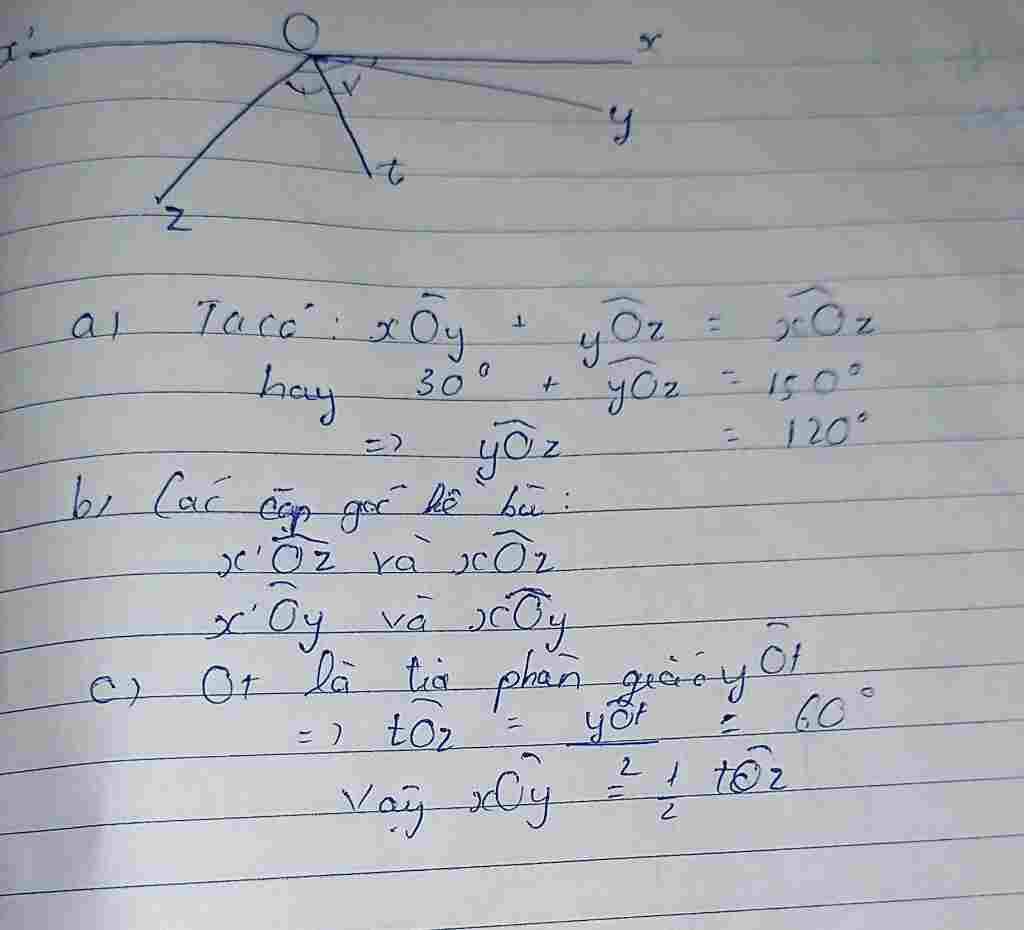 O
x'
x
y
t
z
a) Ta có: xÔy + yÔz = xÔz
hay 30° + yÔz = 150°
=> yÔz = 120°
b) Các cặp góc kề bù:
x'Ôz và xÔz
x'Ôy và xÔy
c) Ot là tia phân giác yÔt
=> tÔz = yÔt/2 = 60°
Vậy xÔy = 1/2 tÔz